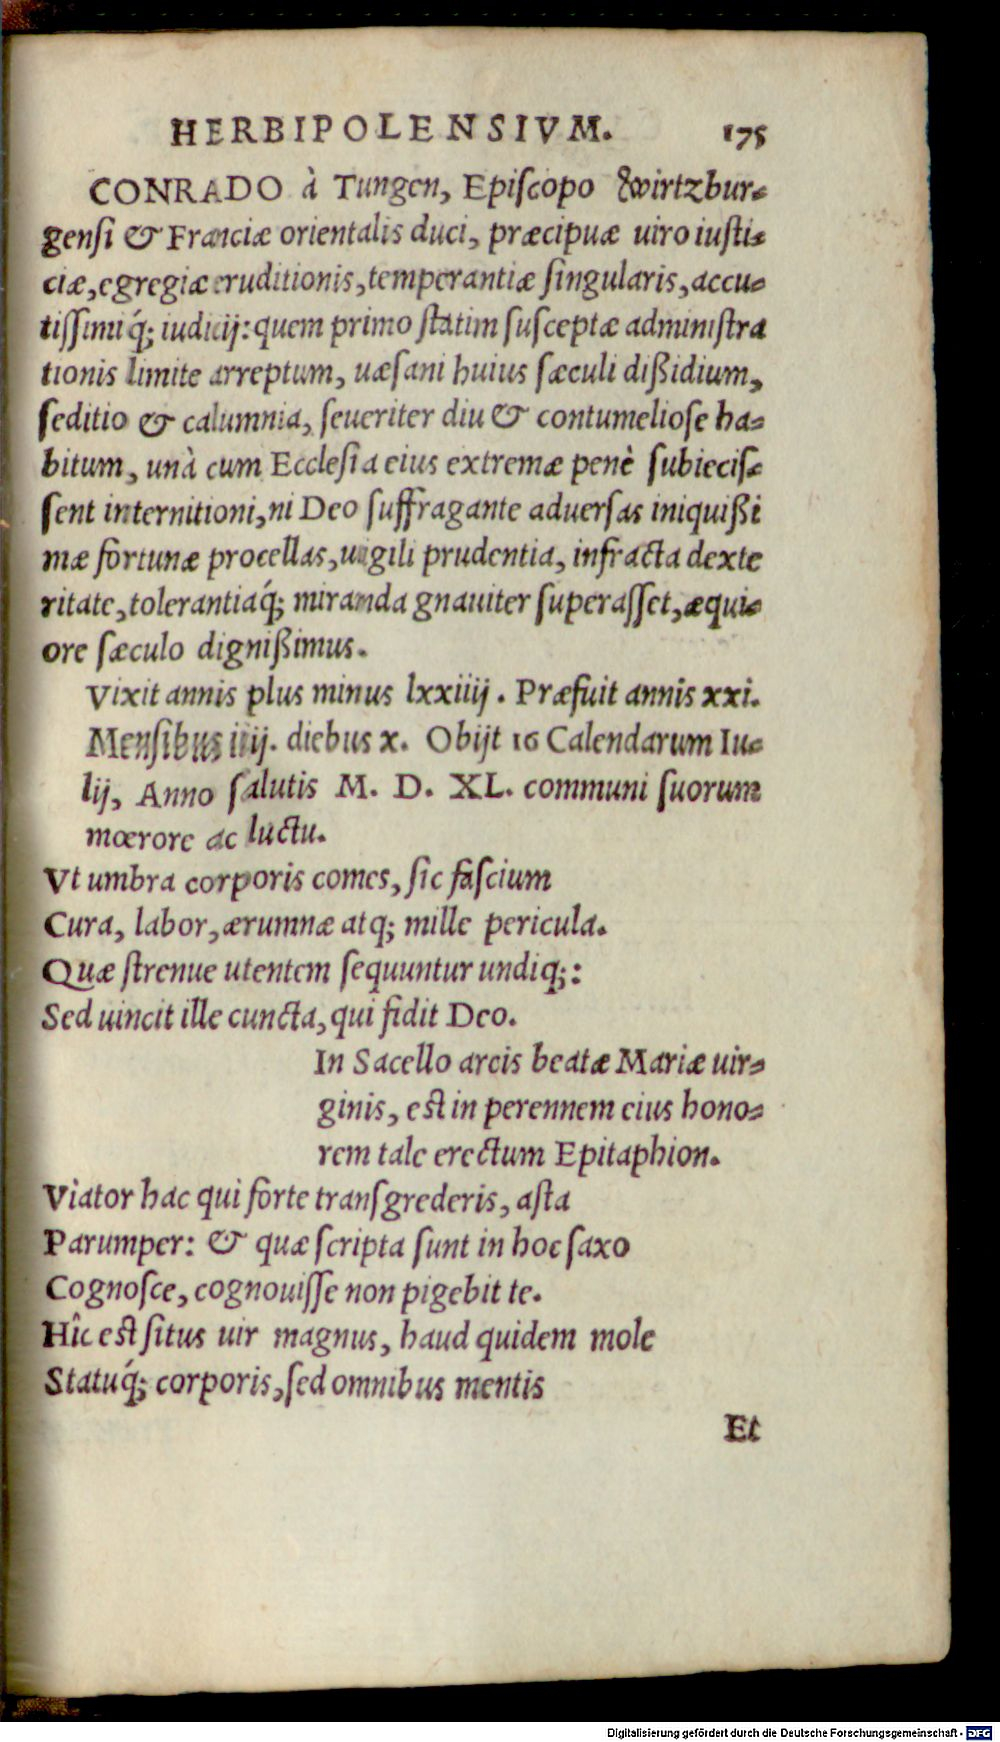 HERBIPOLENSIVM. 175
CONRADO à Tungen, Episcopo Wirtzbur-
gensi & Franciæ orientalis duci, præcipuæ uiro iusti-
ciæ, egregiæ eruditionis, temperantiæ singularis, accu-
tissimiq́; iudicij: quem primo statim susceptæ administra
tionis limite arreptum, uæsani huius sæculi dißidium,
seditio & calumnia, seueriter diu & contumeliose ha-
bitum, unà cum Ecclesia eius extremæ penè subiecis-
sent internitioni, ni Deo suffragante aduersas iniquißi
mæ fortunæ procellas, uigili prudentia, infracta dexte
ritate, tolerantiaq́; miranda gnauiter superasset, æqui-
ore sæculo dignißimus.
Vixit annis plus minus lxxiiij. Præfuit annis xxi.
Mensibus iiij. diebus x. Obijt 16 Calendarum Iu-
lij, Anno salutis M. D. XL. communi suorum
mœrore ac luctu.
Vt umbra corporis comes, sic fascium
Cura, labor, ærumnæ atq; mille pericula.
Quæ strenue utentem sequuntur undiq;:
Sed uincit ille cuncta, qui fidit Deo.
In Sacello arcis beatæ Mariæ uir-
ginis, est in perennem eius hono-
rem tale erectum Epitaphion.
Viator hac qui forte transgrederis, asta
Parumper: & quæ scripta sunt in hoc saxo
Cognosce, cognouisse non pigebit te.
Hîc est situs uir magnus, haud quidem mole
Statuq́; corporis, sed omnibus mentis
Et
Digitalisierung gefördert durch die Deutsche Forschungsgemeinschaft - DFG